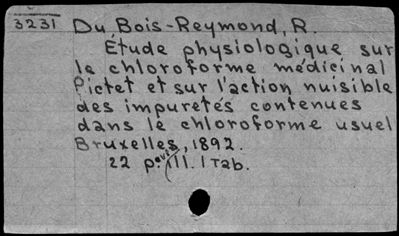 3231 Du Bois-Reymond, R.
Étude physiologique sur
le chloroforme médicinal
Pictet et sur l'action nuisible
des impuretés contenues
dans le chloroforme usuel
Bruxelles, 1892.
22 p. ill. 1 Tab.